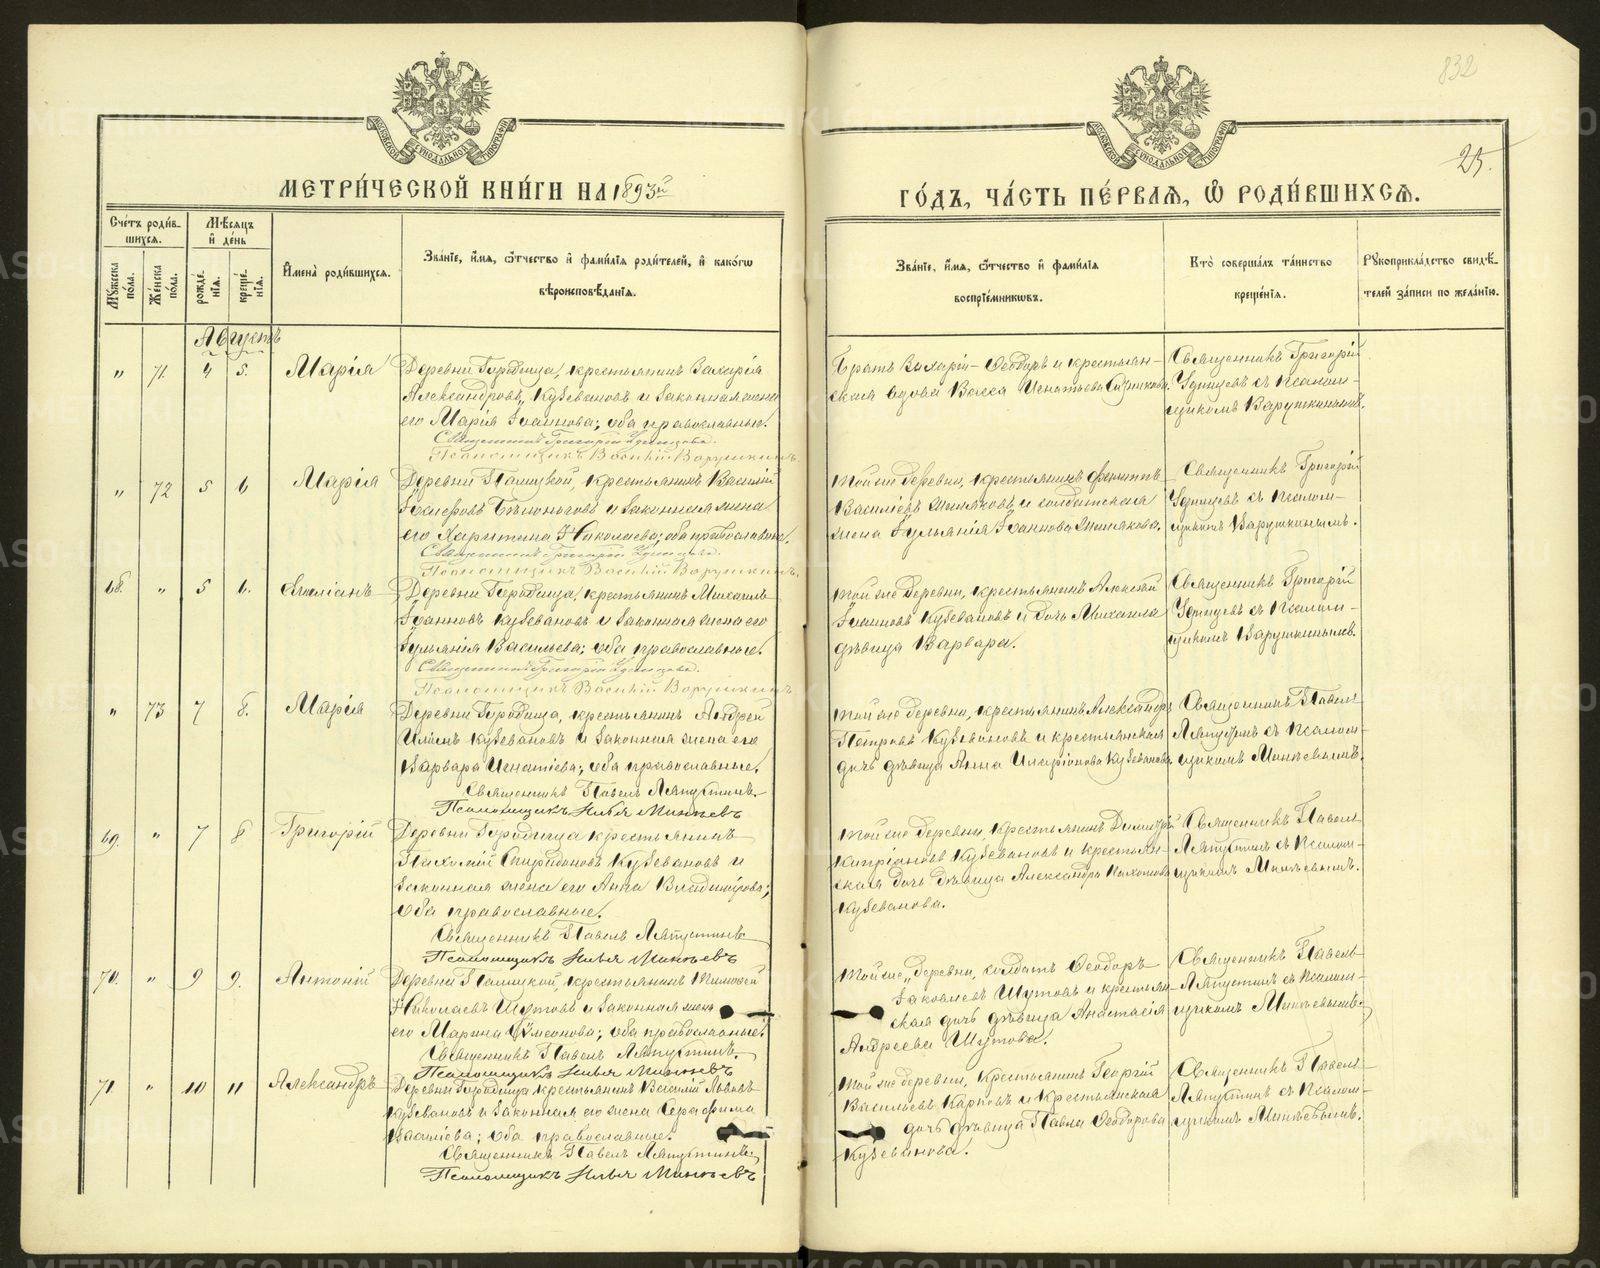 832
25.
МЕТРИ́ЧЕСКОЙ КНИ́ГИ НА 1893й
ГО́ДЪ, ЧА́СТЬ ПЕ́РВАЯ, Ѿ РОДИ́ВШИХСЯ.
МОСКОВСКОЙ СѴНОДАЛЬНОЙ ТИПОГРАФІИ
МОСКОВСКОЙ СѴНОДАЛЬНОЙ ТИПОГРАФІИ
Сче́тъ роди́вшихся.
Мꙋ́жеска по́ла.
Же́нска по́ла.
Мѣ́сяцъ и҆ де́нь
рожде́нїѧ.
креще́нїѧ.
И҆мена̀ роди́вшихся.
Зва́нїе, и҆́мѧ, ѻ҆́тчество и҆ фами́лїѧ роди́телей, и҆ како́гѡ
вѣроисповѣ́данїѧ.
Зва́нїе, и҆́мѧ, ѻ҆́тчество и҆ фами́лїѧ
воспрїе́мникѡвъ.
Кто̀ соверша́лъ та́инство
креще́нїѧ.
Рꙋкоприкла́дство свидѣ́-
телей за́писи по жела́нїю.
Августъ
" 71. 4 5. Марія
Деревни Городища, крестьянинъ Захарія
Александровъ Кузевановъ и законная жена
его Марія Іоаннова; оба православные.
Священникъ Григорій Удинцевъ.
Псаломщикъ Василій Варушкинъ.
Братъ Захарій Ѳеодоръ и крестьян-
ская вдова Васса Игнатьева
Священникъ Григорій
Удинцевъ съ псалом-
щикомъ Варушкинымъ.
" 72 5 6 Марія
Деревни крестьянинъ Василій
и законная жена
его Харитина Николаева; оба православные.
Священникъ Григорій Удинцевъ.
Псаломщикъ Василій Варушкинъ.
Той же деревни, крестьянинъ
Василіевъ и солдатская
жена Іуліанія Іоаннова
Священникъ Григорій
Удинцевъ съ псалом-
щикомъ Варушкинымъ.
68. " 5 6. Емиліанъ
Деревни Городища, крестьянинъ Михаилъ
Іоанновъ Кузевановъ и законная жена его
Іуліанія Васильева; оба православные.
Священникъ Григорій Удинцевъ.
Псаломщикъ Василій Варушкинъ
Той же деревни, крестьянинъ Алексѣй
Іоанновъ Кузевановъ и дочь Михаила
дѣвица Варвара.
Священникъ Григорій
Удинцевъ съ псалом-
щикомъ Варушкинымъ.
" 73 7 8. Марія
Деревни Городища, крестьянинъ Андрей
Кузевановъ и законная жена его
Варвара Игнатіева; оба православные.
Священникъ Павелъ Ляпустинъ.
Псаломщикъ Илья Минѣевъ
Той же деревни, крестьянинъ Александръ
Петровъ Кузевановъ и крестьянская
дочь дѣвица Анна Иларіонова Кузеванова.
Священникъ Павелъ
Ляпустинъ съ псалом-
щикомъ Минѣевымъ.
69. " 7 8 Григорій
Деревни Городища крестьянинъ
Пахомій Спиридоновъ Кузевановъ и
законная жена его Анна Владимірова;
оба православные.
Священникъ Павелъ Ляпустинъ
Псаломщикъ Илья Минѣевъ
Той же деревни, крестьянинъ Димитрій
Кипріановъ Кузевановъ и крестьян-
ская дочь дѣвица Александра Пахомова
Кузеванова.
Священникъ Павелъ
Ляпустинъ съ псалом-
щикомъ Минѣевымъ.
70. " 9 9. Антоній
Деревни крестьянинъ Тимоѳей
Николаевъ Шутовъ и законная жена
его Марина Сѵмеонова; оба православные.
Священникъ Павелъ Ляпустинъ.
Псаломщикъ Илья Минѣевъ
Той же деревни, солдатъ Ѳеодоръ
Іаковлевъ Шутовъ и крестьян-
ская дочь дѣвица Анастасія
Андреева Шутова.
Священникъ Павелъ
Ляпустинъ съ псалом-
щикомъ Минѣевымъ.
71. " 10 11 Александръ
Деревни Городища крестьянинъ Василій Львовъ
Кузевановъ и законная его жена Серафима
оба православные.
Священникъ Павелъ Ляпустинъ
Псаломщикъ Илья Минѣевъ.
Той же деревни, крестьянинъ Георгій
Васильевъ Карповъ и крестьянская
дочь дѣвица Павла Ѳеодорова
Кузеванова.
Священникъ Павелъ
Ляпустинъ съ псалом-
щикомъ Минѣевымъ.
METRIKI.GASO-URAL.RU